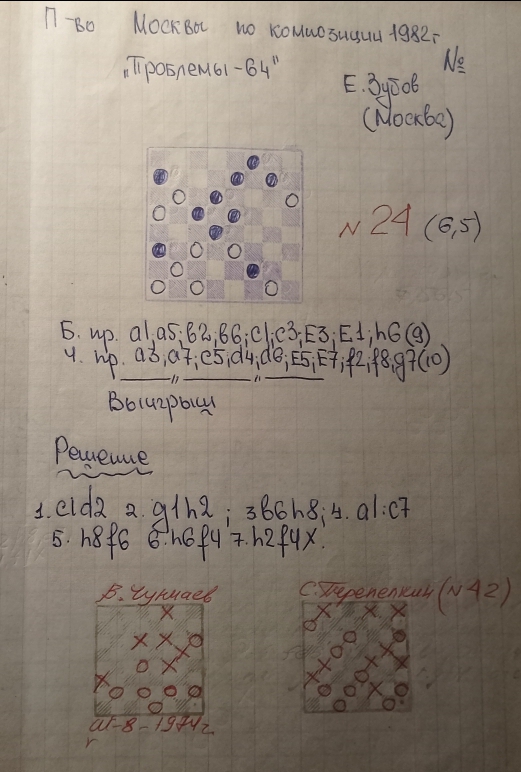 П-во Москвы по композиции 1982г
"Проблемы-64" №
Е. Зубов
(Москва)
N 24 (6,5)
Б. пр. a1,a5;b2;b6;c1;c3;E3;E1;h6(9)
Ч. пр. a3,a7;c5;d4;d6;E5;E7;f2;f8;g7(10)
Выигрыш
Решение
1.c1d2 2.g1h2; 3b6h8; 4. a1:c7
5. h8f6 6.h6f4 7.h2f4X.
В. Чунчаев С. Перепелкин (N 42)
-8-1974г.